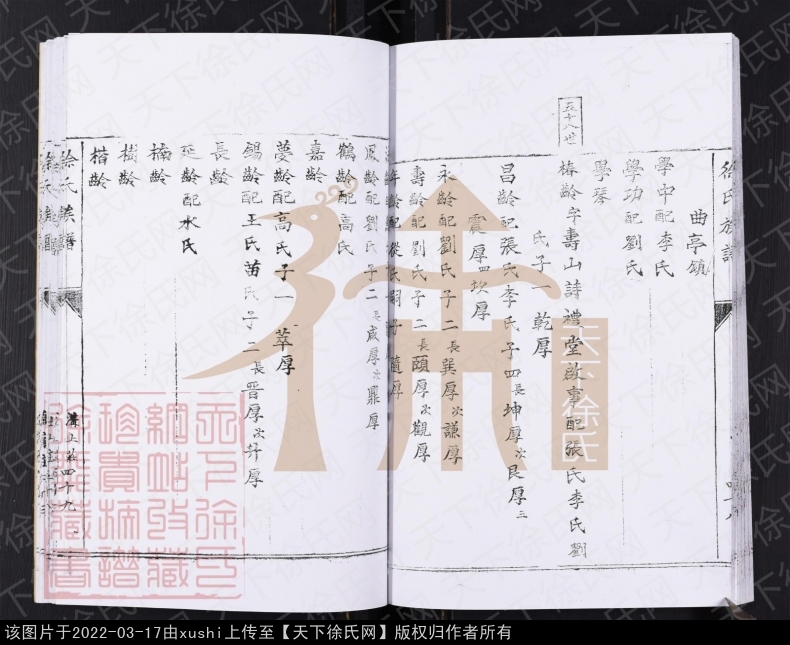 徐氏族譜
曲亭鎮
學中配李氏
學功配劉氏
學琴
五十八世
椿齡字壽山詩禮堂啟事配張氏李氏劉
氏子一乾厚
昌齡配張氏李氏子四長坤厚次艮厚三
震厚四坎厚
永齡配劉氏子二長巽厚次謙厚
壽齡配劉氏子二長頤厚次觀厚
年齡配
氏嗣子隨厚
鳳齡配劉氏子二長咸厚次鼎厚
鶴齡配高氏
嘉齡
夢齡配高氏子一萃厚
錫齡配王氏苗氏子二長晋厚次升厚
長齡
延齡配水氏
楠齡
樹齡
楷齡
徐氏族譜
溝上莊四十九
天下徐氏
天下徐氏网
该图片于2022-03-17由xushi上传至【天下徐氏网】版权归作者所有